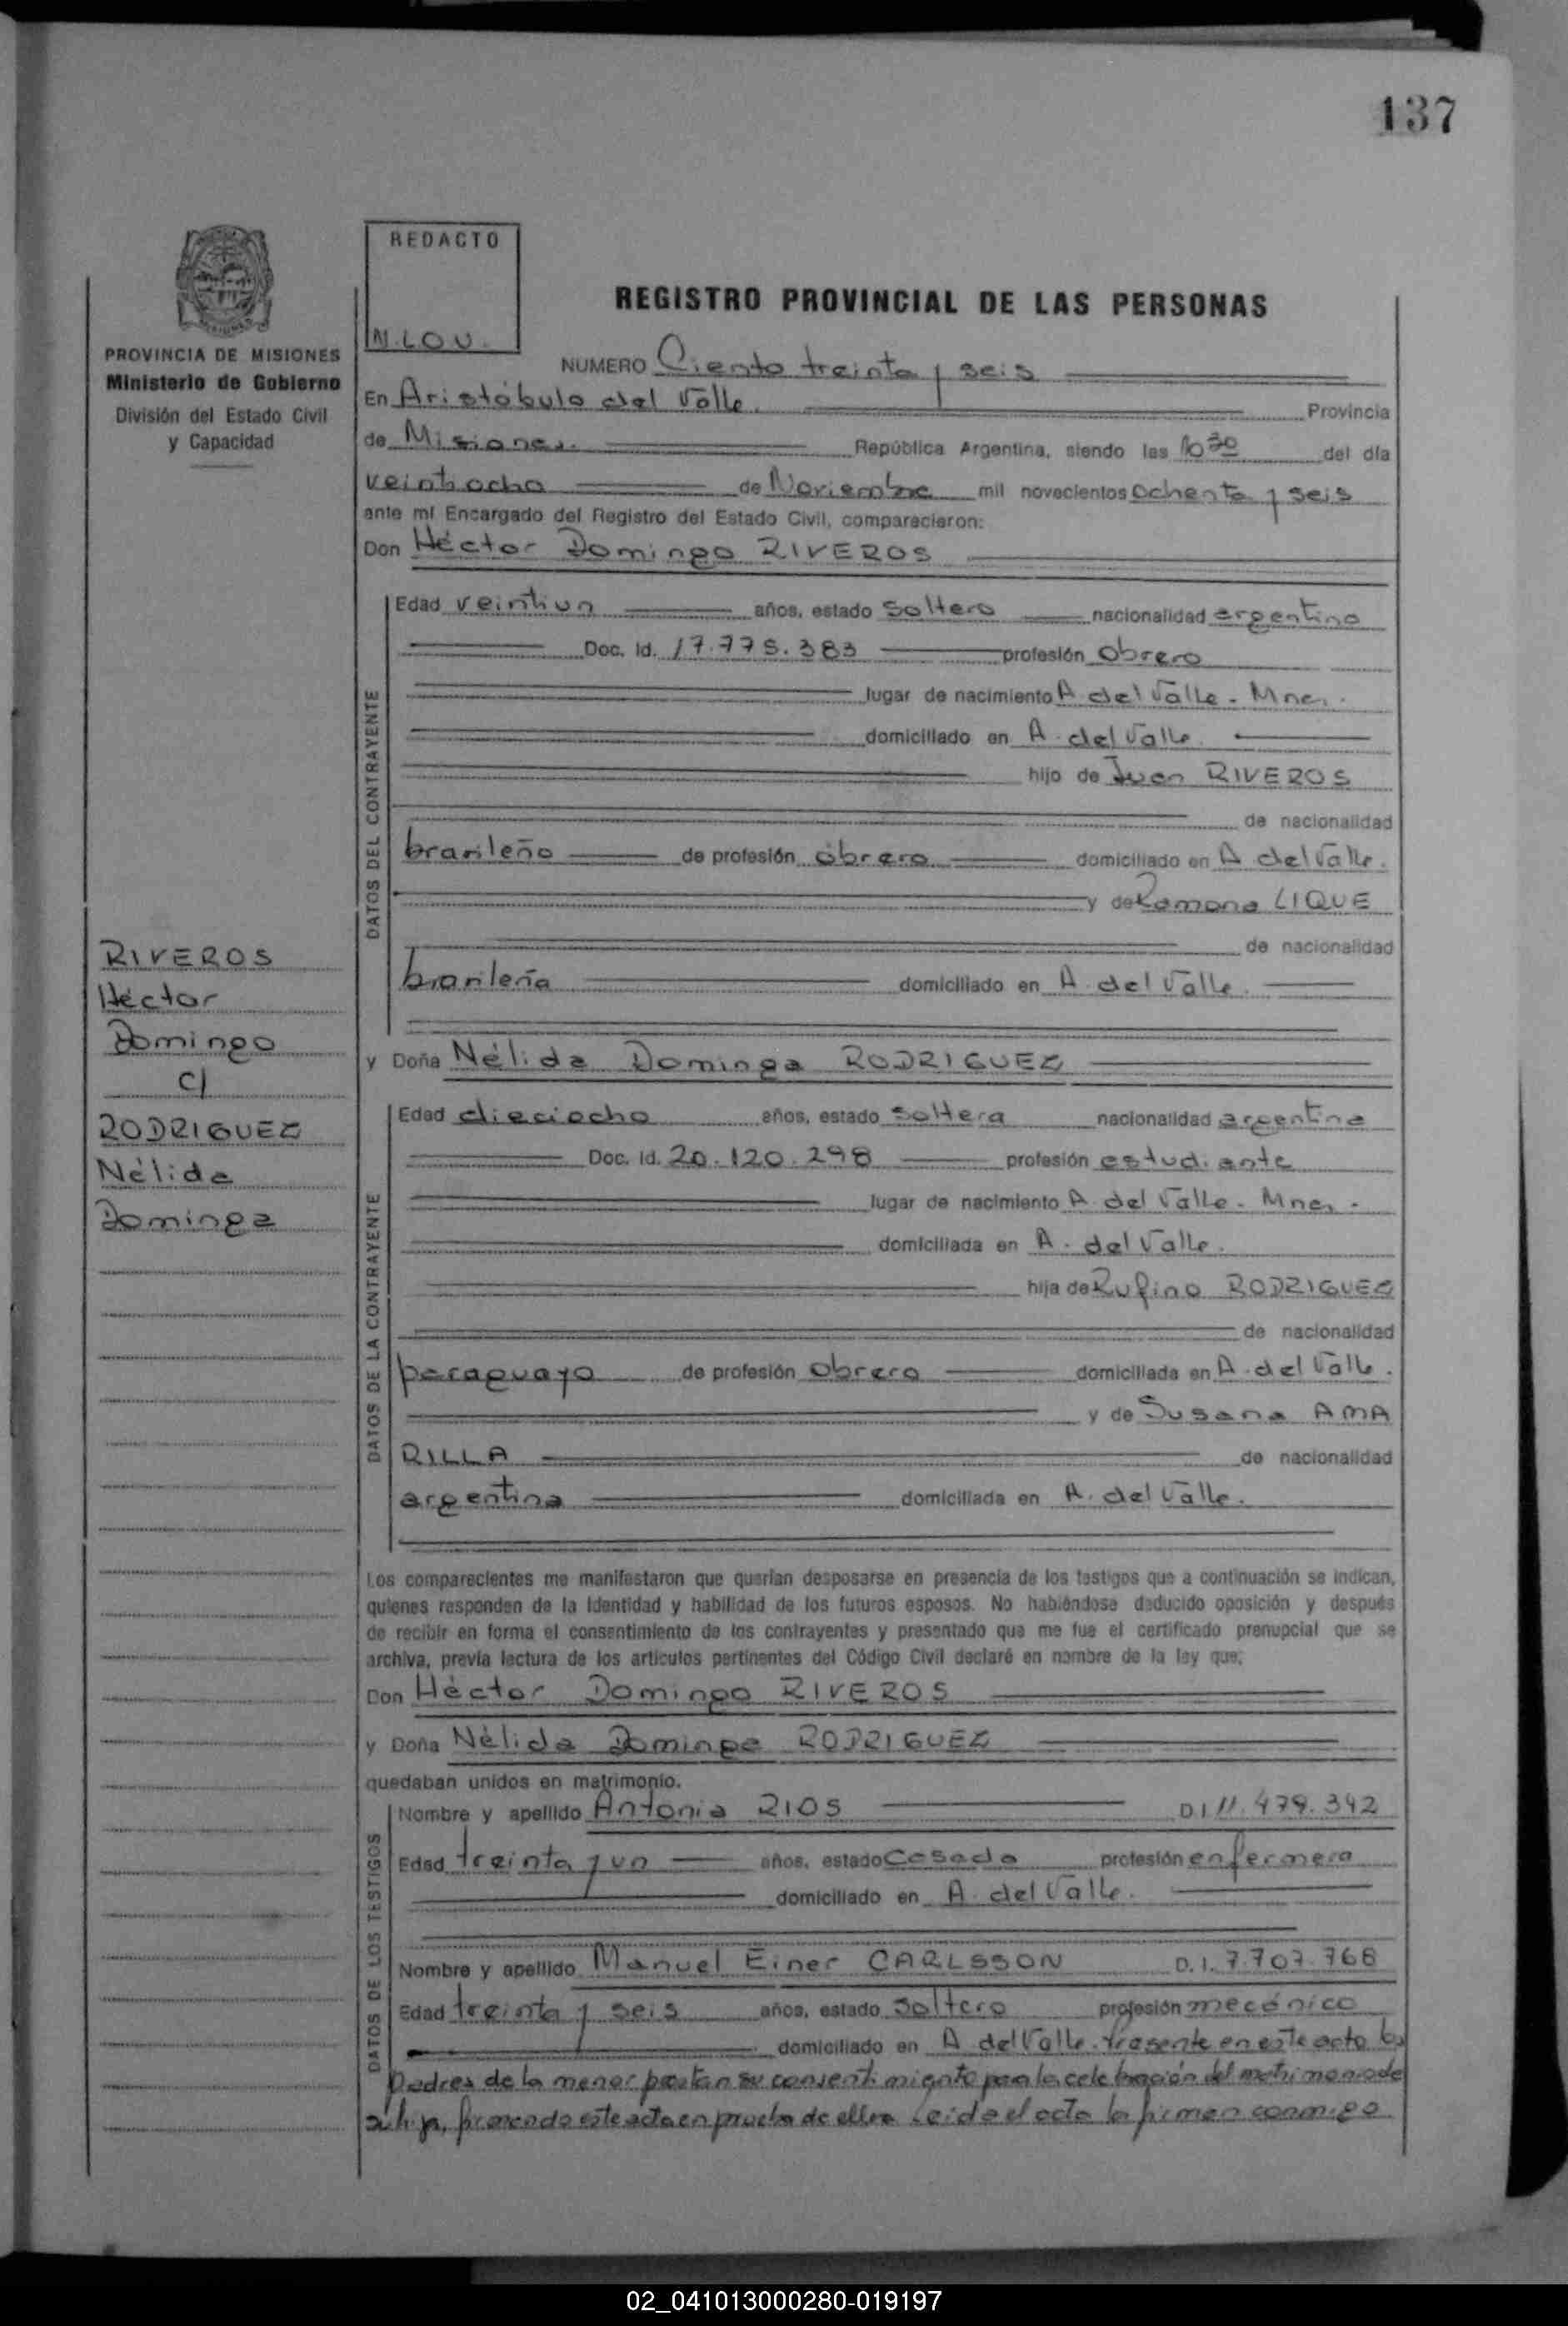 137
REDACTO
N.LOU.
REGISTRO PROVINCIAL DE LAS PERSONAS
PROVINCIA DE MISIONES
Ministerio de Gobierno
División del Estado Civil
y Capacidad
NUMERO Ciento treinta y seis
En Aristóbulo del Valle. Provincia
de Misiones. República Argentina, siendo las 10 30 del día
veintiocho de Noviembre mil novecientos ochenta y seis
ante mí Encargado del Registro del Estado Civil, comparecieron:
Don Héctor Domingo RIVEROS
DATOS DEL CONTRAYENTE
Edad veintiun años, estado soltero nacionalidad argentino
Doc. Id. 17.775.383 profesión obrero
lugar de nacimiento A. del Valle - Mnes.
domiciliado en A. del Valle.
hijo de Juan RIVEROS
de nacionalidad
brasileño de profesión obrero domiciliado en A. del Valle.
y de Ramona LIQUE
de nacionalidad
brasileña domiciliado en A. del Valle.
RIVEROS
Héctor
Domingo
c/
RODRIGUEZ
Nélida
Dominga
y Doña Nélida Dominga RODRIGUEZ
DATOS DE LA CONTRAYENTE
Edad dieciocho años, estado soltera nacionalidad argentina
Doc. Id. 20.120.298 profesión estudiante
lugar de nacimiento A. del Valle - Mnes.
domiciliada en A. del Valle.
hija de Rufino RODRIGUEZ
de nacionalidad
paraguayo de profesión obrero domiciliada en A. del Valle.
y de Susana AMA
RILLA de nacionalidad
argentina domiciliada en A. del Valle.
Los comparecientes me manifestaron que querían desposarse en presencia de los testigos que a continuación se indican,
quienes responden de la Identidad y habilidad de los futuros esposos. No habiéndose deducido oposición y después
de recibir en forma el consentimiento de los contrayentes y presentado que me fue el certificado prenupcial que se
archiva, previa lectura de los artículos pertinentes del Código Civil declaré en nombre de la ley que:
Don Héctor Domingo RIVEROS
y Doña Nélida Dominga RODRIGUEZ
quedaban unidos en matrimonio.
DATOS DE LOS TESTIGOS
Nombre y apellido Antonia RIOS D.I 11.479.342
Edad treinta y un años, estado casada profesión enfermera
domiciliado en A. del Valle.
Nombre y apellido Manuel Einer CARLSSON D.I. 7.707.768
Edad treinta y seis años, estado soltero profesión mecánico
domiciliado en A. del Valle. Presente en este acto los
padres de la menor prestan su consentimiento para la celebración del matrimonio de
su hija, firmando este acta en prueba de ello. Leida el acta la firman conmigo
02_041013000280-019197